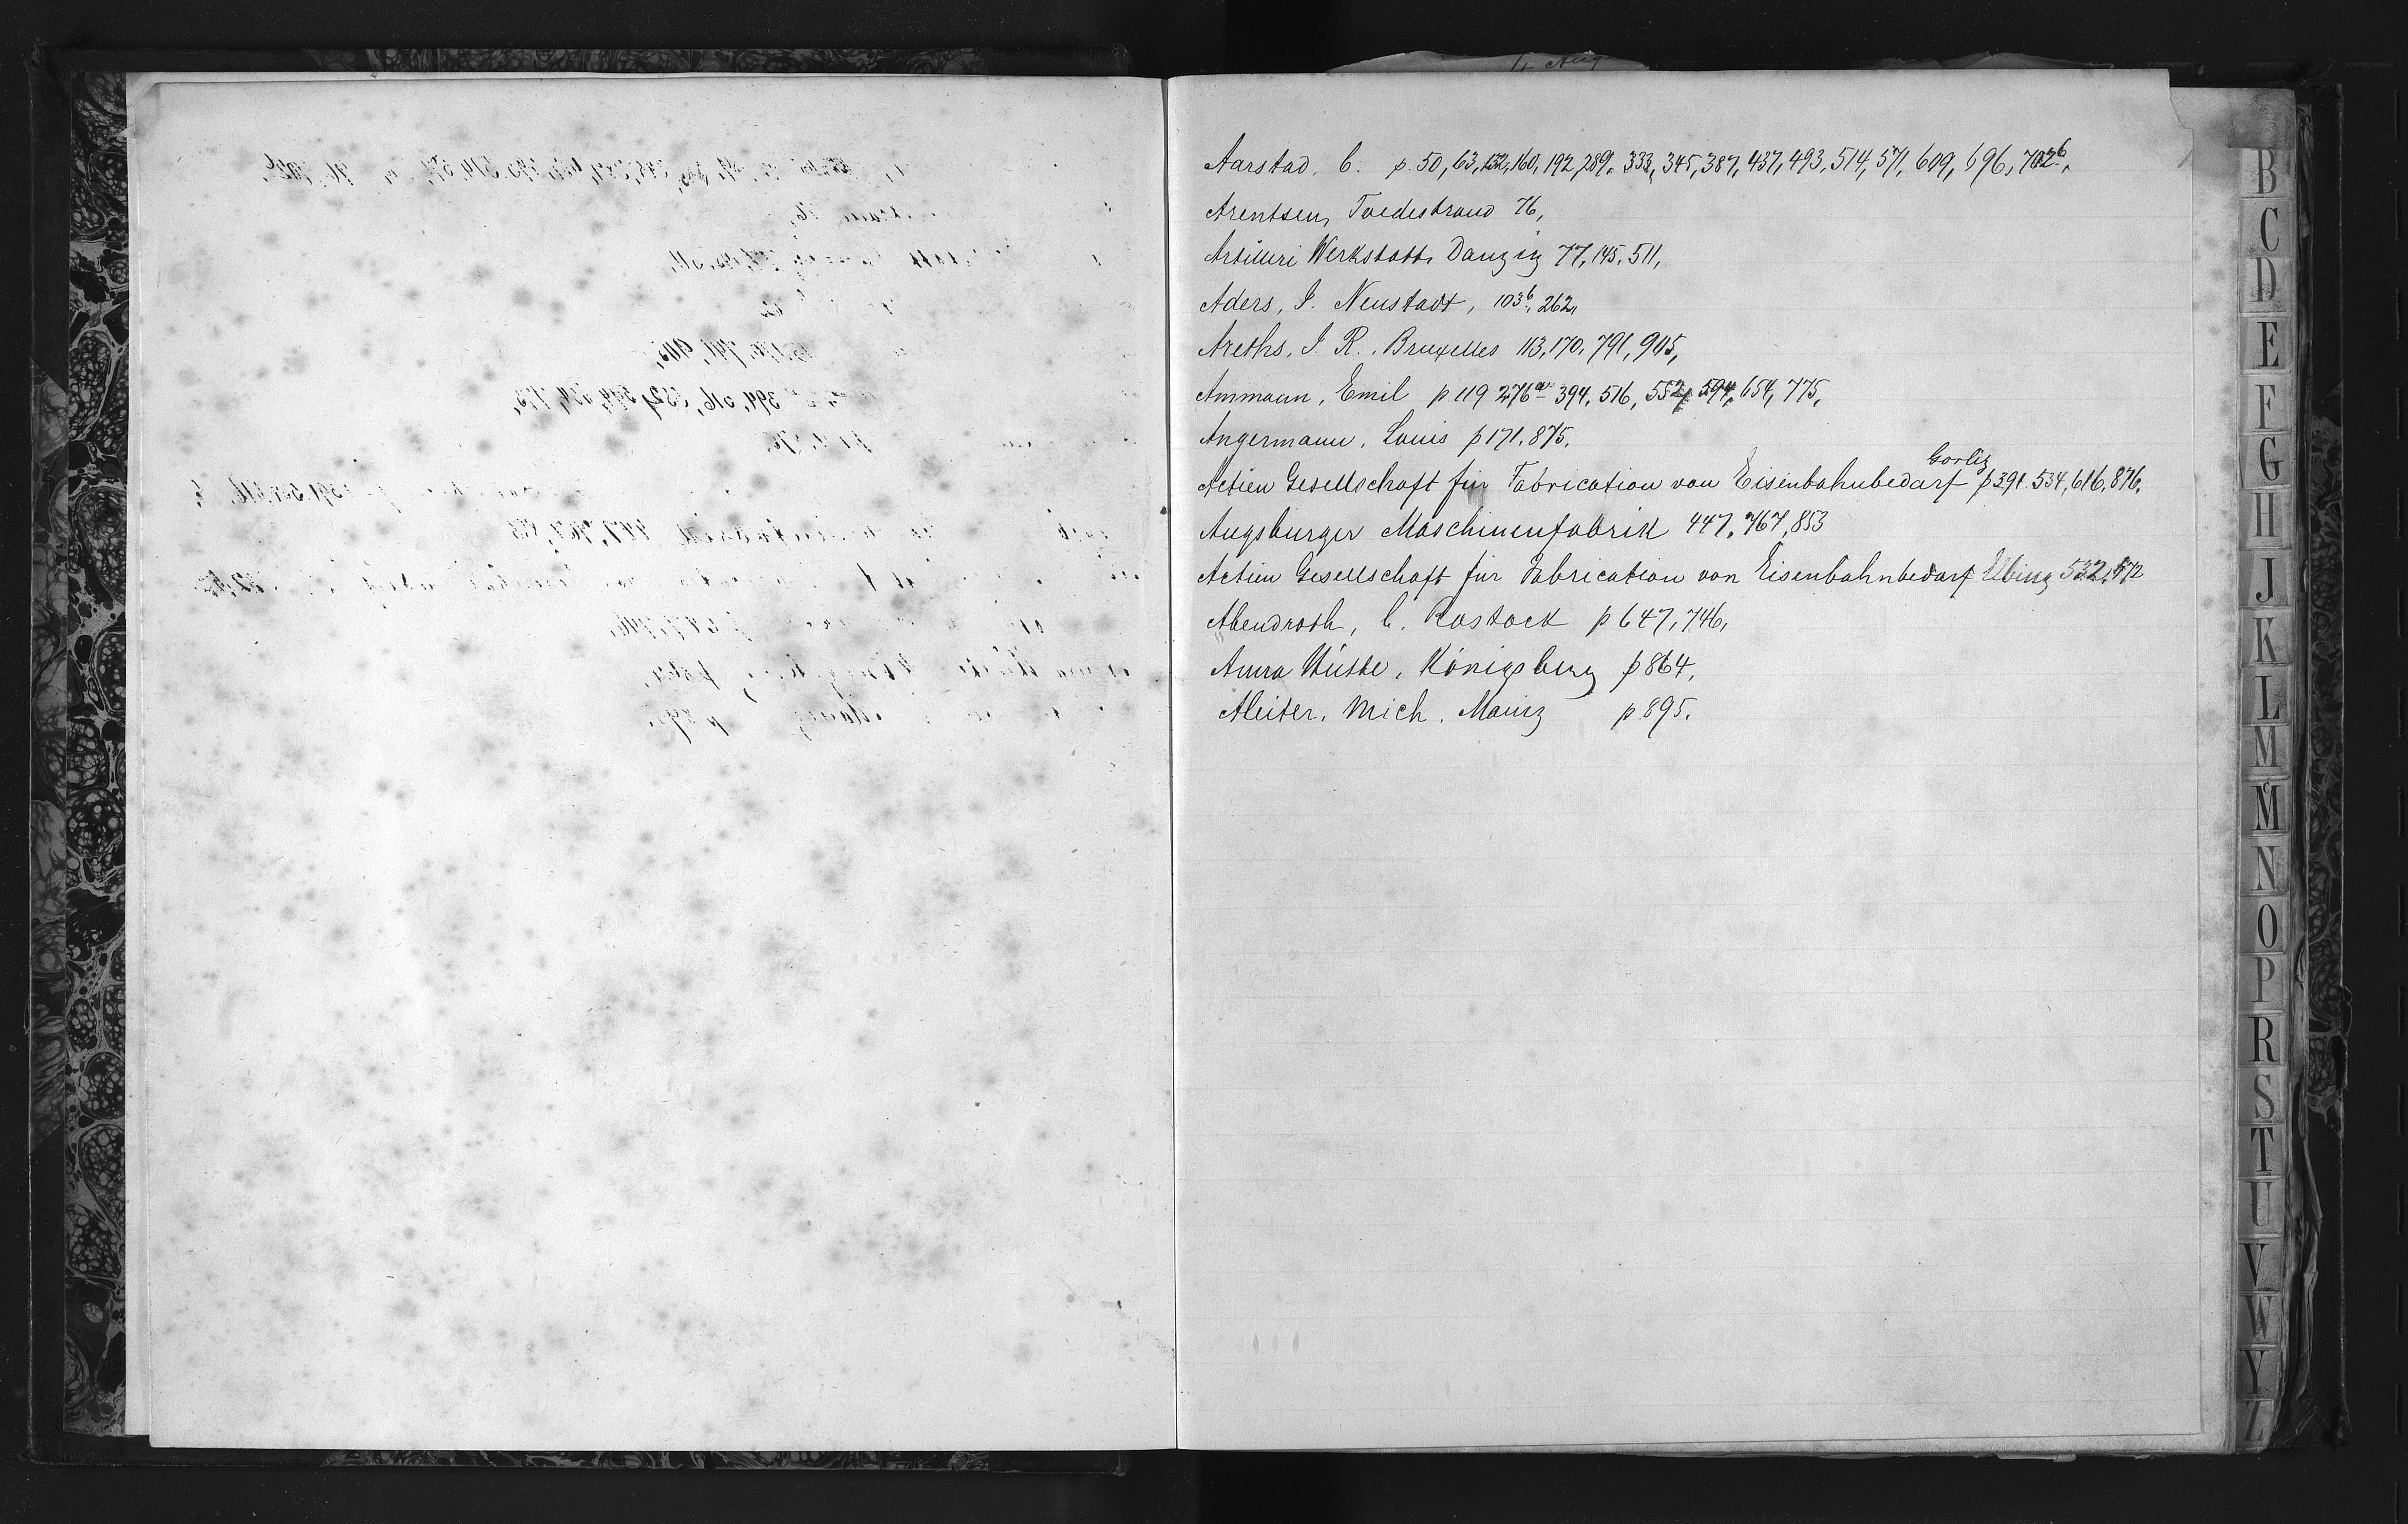 4 Aug
Aarstad, C. p. 50, 63, 132, 160, 192, 289, 333, 345, 387, 437, 493, 514, 571, 609, 696, 702b,
Arentsen, Tvedestrand 76,
Artilleri Werkstatt, Danzig 77, 145, 511,
Aders, J. Neustadt, 103b, 262,
Areths, J. R., Bruxelles 113, 170, 791, 905,
Ammann, Emil p 119 276a 394, 516, 552, 594, 654, 775,
Angermann, Louis p 171, 875,
Gorliz
Actien Gesellschaft für Fabrication von Eisenbahnbedarf p 391. 534, 616, 876,
Augsburger Maschinenfabrik 447, 767, 853
Actien Gesellschaft für Fabrication von Eisenbahnbedarf Elbing 532, 572
Abendroth, C. Rostock p 647, 746,
Anna Hütte, Königsberg p 864,
Aleiter, Mich. Mainz p 895.
B
C
D
E
F
G
H
J
K
L
M
Mc
N
O
P
R
S
T
U
V
W
Y
Z